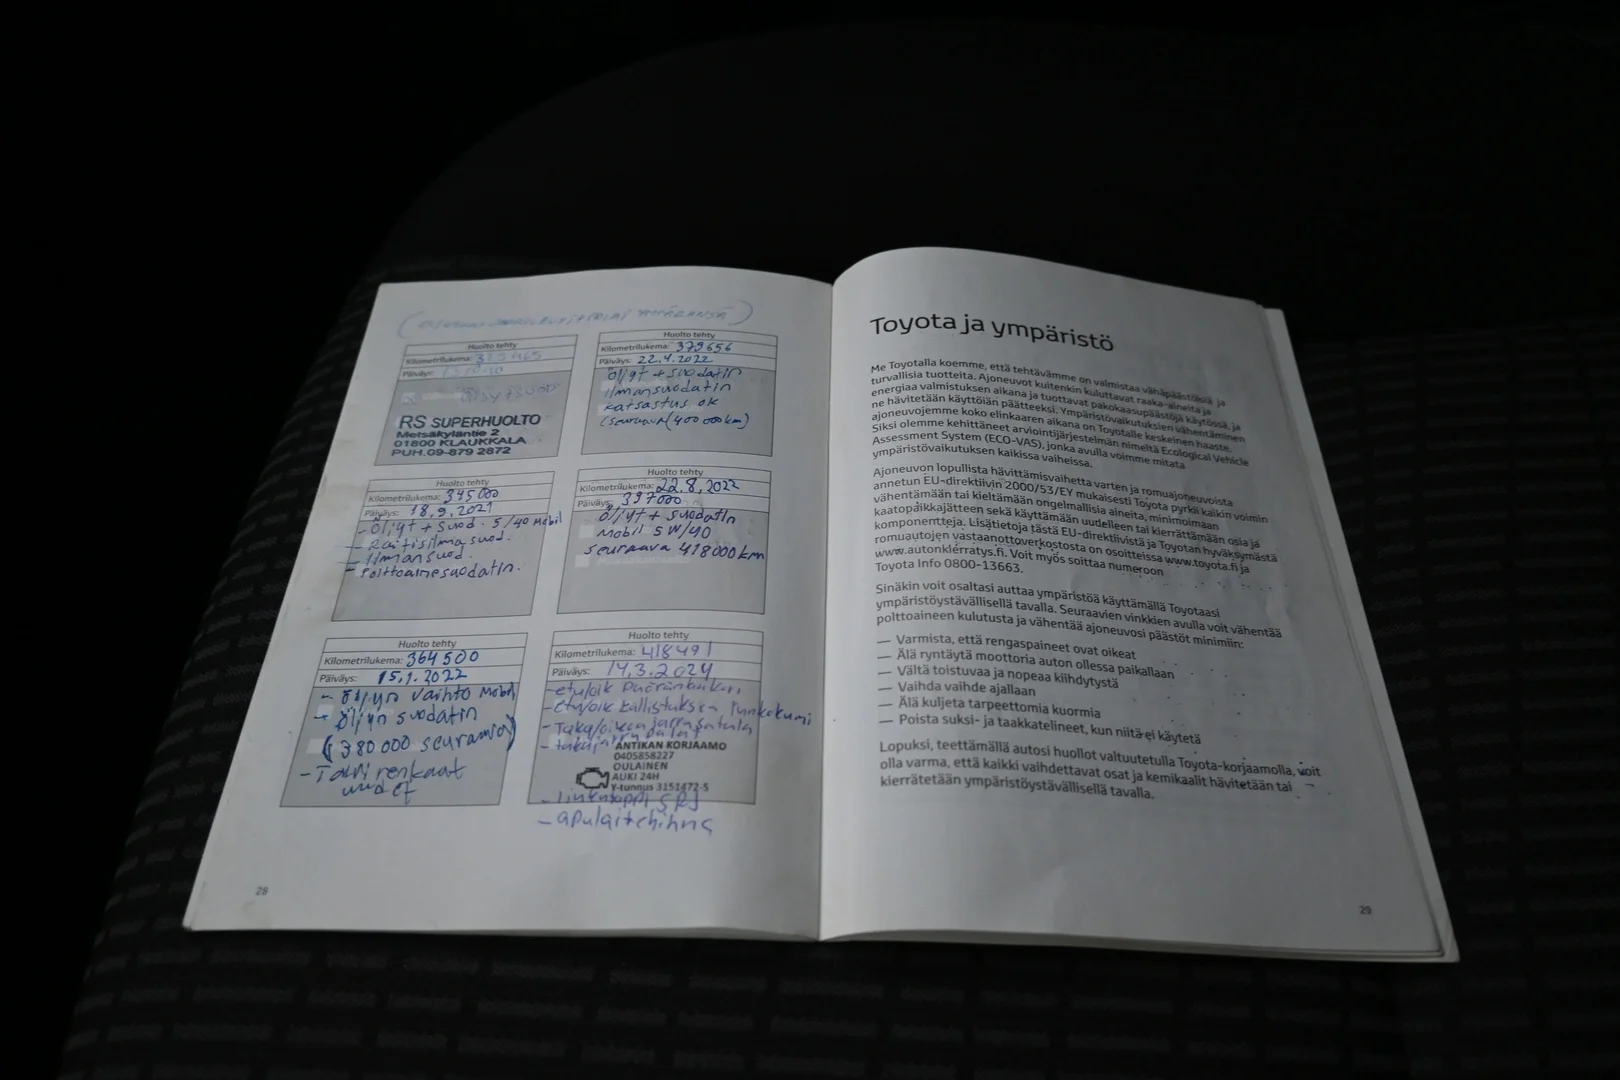 Huolto tehty
Kilometrilukema:
Päiväys:
RS SUPERHUOLTO
Metsäkyläntie 2
01800 KLAUKKALA
PUH.09-879 2872
Huolto tehty
Kilometrilukema: 345000
Päiväys: 18.9.2021
- Öljyt + suod. 5/40 Mobil
- Raitisilma suod.
- Ilman suod.
- Polttoainesuodatin.
Huolto tehty
Kilometrilukema: 364500
Päiväys: 15.1.2022
- Öljyn vaihto Mobil
- Öljyn suodatin
(380 000 seuraava)
- Talvi renkaat
uudet
Huolto tehty
Kilometrilukema: 379656
Päiväys: 22.4.2022
Öljyt + suodatin
Ilmansuodatin
katsastus ok
(seuraava (400 000km)
Huolto tehty
Kilometrilukema: 22.8.2022
Päiväys: 397000
Öljyt + suodatin
Mobil 5W/40
seuraava 418000km
Huolto tehty
Kilometrilukema: 418491
Päiväys: 14.3.2024
- etu/oik
- etu/oik kallistuksen
- Taka/oikea jarrusatula
ANTIKAN KORJAAMO
0405858227
OULAINEN
AUKI 24H
Y-tunnus 3151472-5
- apulaitehihna
28
Toyota ja ympäristö
Me Toyotalla koemme, että tehtävämme on valmistaa vähäpäästöisiä ja
turvallisia tuotteita. Ajoneuvot kuitenkin kuluttavat raaka-aineita ja
energiaa valmistuksen aikana ja tuottavat pakokaasupäästöjä käytössä, ja
ne hävitetään käyttöiän päätteeksi. Ympäristövaikutuksien vähentäminen
ajoneuvojemme koko elinkaaren aikana on Toyotalle keskeinen haaste.
Siksi olemme kehittäneet arviointijärjestelmän nimeltä Ecological Vehicle
Assessment System (ECO-VAS), jonka avulla voimme mitata
ympäristövaikutuksen kaikissa vaiheissa.
Ajoneuvon lopullista hävittämisvaihetta varten ja romuajoneuvoista
annetun EU-direktiivin 2000/53/EY mukaisesti Toyota pyrkii kaikin voimin
vähentämään tai kieltämään ongelmallisia aineita, minimoimaan
kaatopaikkajätteen sekä käyttämään uudelleen tai kierrättämään osia ja
komponentteja. Lisätietoja tästä EU-direktiivistä ja Toyotan hyväksymästä
romuautojen vastaanottoverkostosta on osoitteissa www.toyota.fi ja
www.autonkierratys.fi. Voit myös soittaa numeroon
Toyota Info 0800-13663.
Sinäkin voit osaltasi auttaa ympäristöä käyttämällä Toyotaasi
ympäristöystävällisellä tavalla. Seuraavien vinkkien avulla voit vähentää
polttoaineen kulutusta ja vähentää ajoneuvosi päästöt minimiin:
— Varmista, että rengaspaineet ovat oikeat
— Älä ryntäytä moottoria auton ollessa paikallaan
— Vältä toistuvaa ja nopeaa kiihdytystä
— Vaihda vaihde ajallaan
— Älä kuljeta tarpeettomia kuormia
— Poista suksi- ja taakkatelineet, kun niitä ei käytetä
Lopuksi, teettämällä autosi huollot valtuutetulla Toyota-korjaamolla, voit
olla varma, että kaikki vaihdettavat osat ja kemikaalit hävitetään tai
kierrätetään ympäristöystävällisellä tavalla.
29